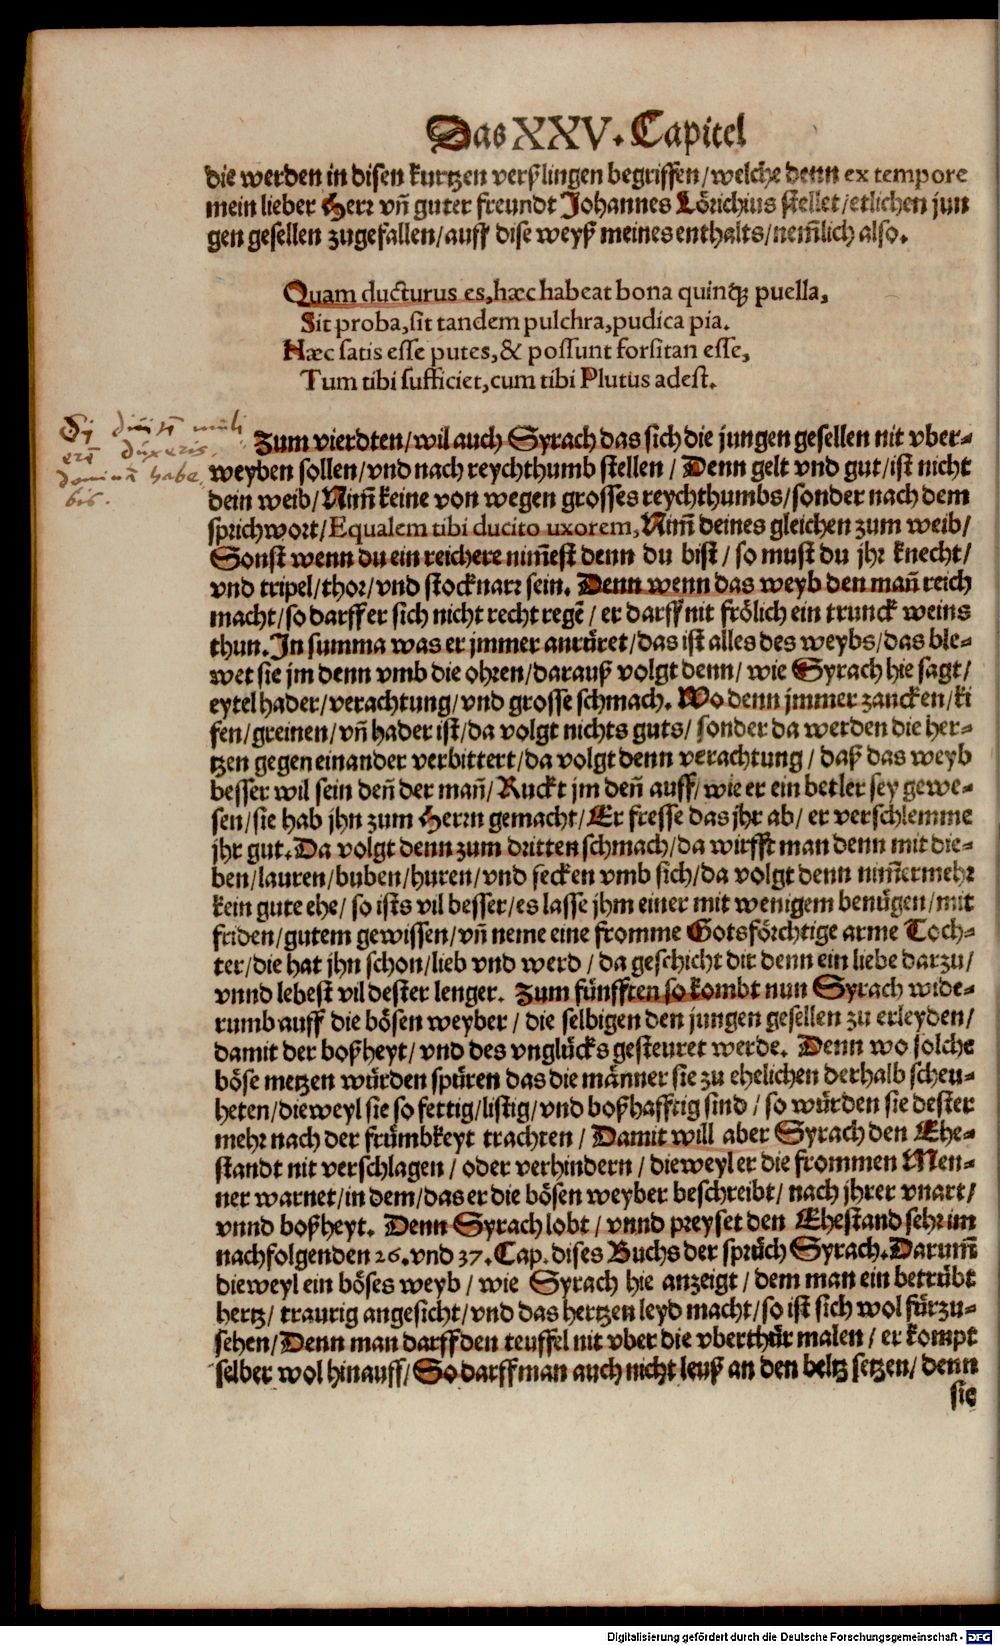 Das XXV. Capitel
die werden in disen kurtzen verßlingen begriffen/welche denn ex tempore
mein lieber Herr vñ guter freundt Johannes Lörichius stellet/etlichen jun
gen gesellen zugefallen/auff dise weyß meines enthalts/nem̃lich also.
Quam ducturus es, hæc habeat bona quinq; puella,
Sit proba, sit tandem pulchra, pudica pia.
Hæc satis esse putes, & possunt forsitan esse,
Tum tibi sufficiet, cum tibi Plutus adest.
Sy diuitē muli
erē duxeris,
dominā habe,
bis.
Zum vierdten/wil auch Syrach das sich die jungen gesellen nit vber-
weyben sollen/vnd nach reychthumb stellen/Denn gelt vnd gut/ist nicht
dein weib/Nim̃ keine von wegen grosses reychthumbs/sonder nach dem
sprichwort/Equalem tibi ducito uxorem, Nim̃ deines gleichen zum weib/
Sonst wenn du ein reichere nim̃est denn du bist/so must du jhr knecht/
vnd tripel/thor/vnd stocknarr sein. Denn wenn das weyb den mañ reich
macht/so darff er sich nicht recht regē/er darff nit frölich ein trunck weins
thun. In summa was er jmmer anrüret/das ist alles des weybs/das ble-
wet sie jm denn vmb die ohren/darauß volgt denn/wie Syrach hie sagt/
eytel hader/verachtung/vnd grosse schmach. Wo denn jmmer zancken/ki
fen/greinen/vñ hader ist/da volgt nichts guts/sonder da werden die her-
tzen gegen einander verbittert/da volgt denn verachtung/daß das weyb
besser wil sein deñ der mañ/Ruckt jm deñ auff/wie er ein betler sey gewe-
sen/sie hab jhn zum Herrn gemacht/Er fresse das jhr ab/er verschlemme
jhr gut. Da volgt denn zum dritten schmach/da wirfft man denn mit die-
ben/lauren/buben/huren/vnd secken vmb sich/da volgt denn nim̃ermehr
kein gute ehe/so ists vil besser/es lasse jhm einer mit wenigem benügen/mit
friden/gutem gewissen/vñ neme eine fromme Gotsförchtige arme Toch-
ter/die hat jhn schon/lieb vnd werd/da geschicht dir denn ein liebe darzu/
vnnd lebest vil dester lenger. Zum fünfften so kombt nun Syrach wide-
rumb auff die bösen weyber/die selbigen den jungen gesellen zu erleyden/
damit der boßheyt/vnd des vnglücks gesteuret werde. Denn wo solche
böse metzen würden spüren das die männer sie zu ehelichen derhalb scheu-
heten/dieweyl sie so fettig/listig/vnd boßhafftig sind/so würden sie dester
mehr nach der frümbkeyt trachten/Damit will aber Syrach den Ehe-
standt nit verschlagen/oder verhindern/dieweyl er die frommen Men-
ner warnet/in dem/das er die bösen weyber beschreibt/nach jhrer vnart/
vnnd boßheyt. Denn Syrach lobt/vnnd preyset den Ehestand sehr im
nachfolgenden 26. vnd 37. Cap. dises Buchs der sprüch Syrach. Darum̃
dieweyl ein böses weyb/wie Syrach hie anzeigt/dem man ein betrübt
hertz/traurig angesicht/vnd das hertzen leyd macht/so ist sich wol fürzu-
sehen/Denn man darff den teuffel nit vber die vberthür malen/er kompt
selber wol hinauff/So darff man auch nicht leuß an den beltz setzen/denn
sie
Digitalisierung gefördert durch die Deutsche Forschungsgemeinschaft - DFG